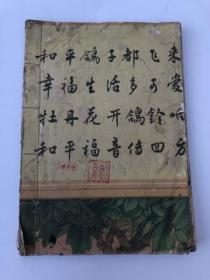 和平鸽子都飞来
幸福生活多可爱
牡丹花开鸽铃响
和平福音传四方